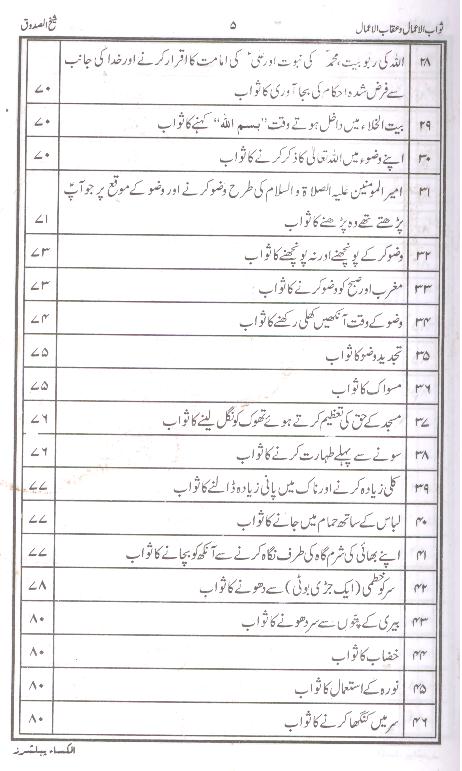 ثواب الاعمال و عقاب الاعمال ۵ شیخ الصدوق
۲۸ اللہ کی ربوبیت، محمدؐ کی نبوت اور علیؑ کی امامت کا اقرار کرنے اور خدا کی جانب
سے فرض شدہ احکام کی بجا آوری کا ثواب ۷۰
۲۹ بیت الخلاء میں داخل ہوتے وقت "بسم اللہ" کہنے کا ثواب ۷۰
۳۰ اپنے وضوء میں اللہ تعالی کا ذکر کرنے کا ثواب ۷۰
۳۱ امیر المومنین علیہ الصلاۃ والسلام کی طرح وضو کرنے اور وضو کے موقع پر جو آپؑ
پڑھتے تھے وہ پڑھنے کا ثواب ۷۱
۳۲ وضو کر کے پونچھنے اور نہ پونچھنے کا ثواب ۷۳
۳۳ مغرب اور صبح کو وضو کرنے کا ثواب ۷۳
۳۴ وضو کے وقت آنکھیں کھلی رکھنے کا ثواب ۷۴
۳۵ تجدید وضو کا ثواب ۷۵
۳۶ مسواک کا ثواب ۷۵
۳۷ مسجد کے حق کی تعظیم کرتے ہوئے تھوک کو نگل لینے کا ثواب ۷۶
۳۸ سونے سے پہلے طہارت کرنے کا ثواب ۷۶
۳۹ کلی زیادہ کرنے اور ناک میں پانی زیادہ ڈالنے کا ثواب ۷۷
۴۰ لباس کے ساتھ حمام میں جانے کا ثواب ۷۷
۴۱ اپنے بھائی کی شرم گاہ کی طرف نگاہ کرنے سے آنکھ کو بچانے کا ثواب ۷۷
۴۲ سر کو خطمی (ایک جڑی بوٹی) سے دھونے کا ثواب ۷۸
۴۳ بیری کے پتوں سے سر دھونے کا ثواب ۸۰
۴۴ خضاب کا ثواب ۸۰
۴۵ نورہ کے استعمال کا ثواب ۸۰
۴۶ سر میں کنگھا کرنے کا ثواب ۸۰
الکساء پبلشرز